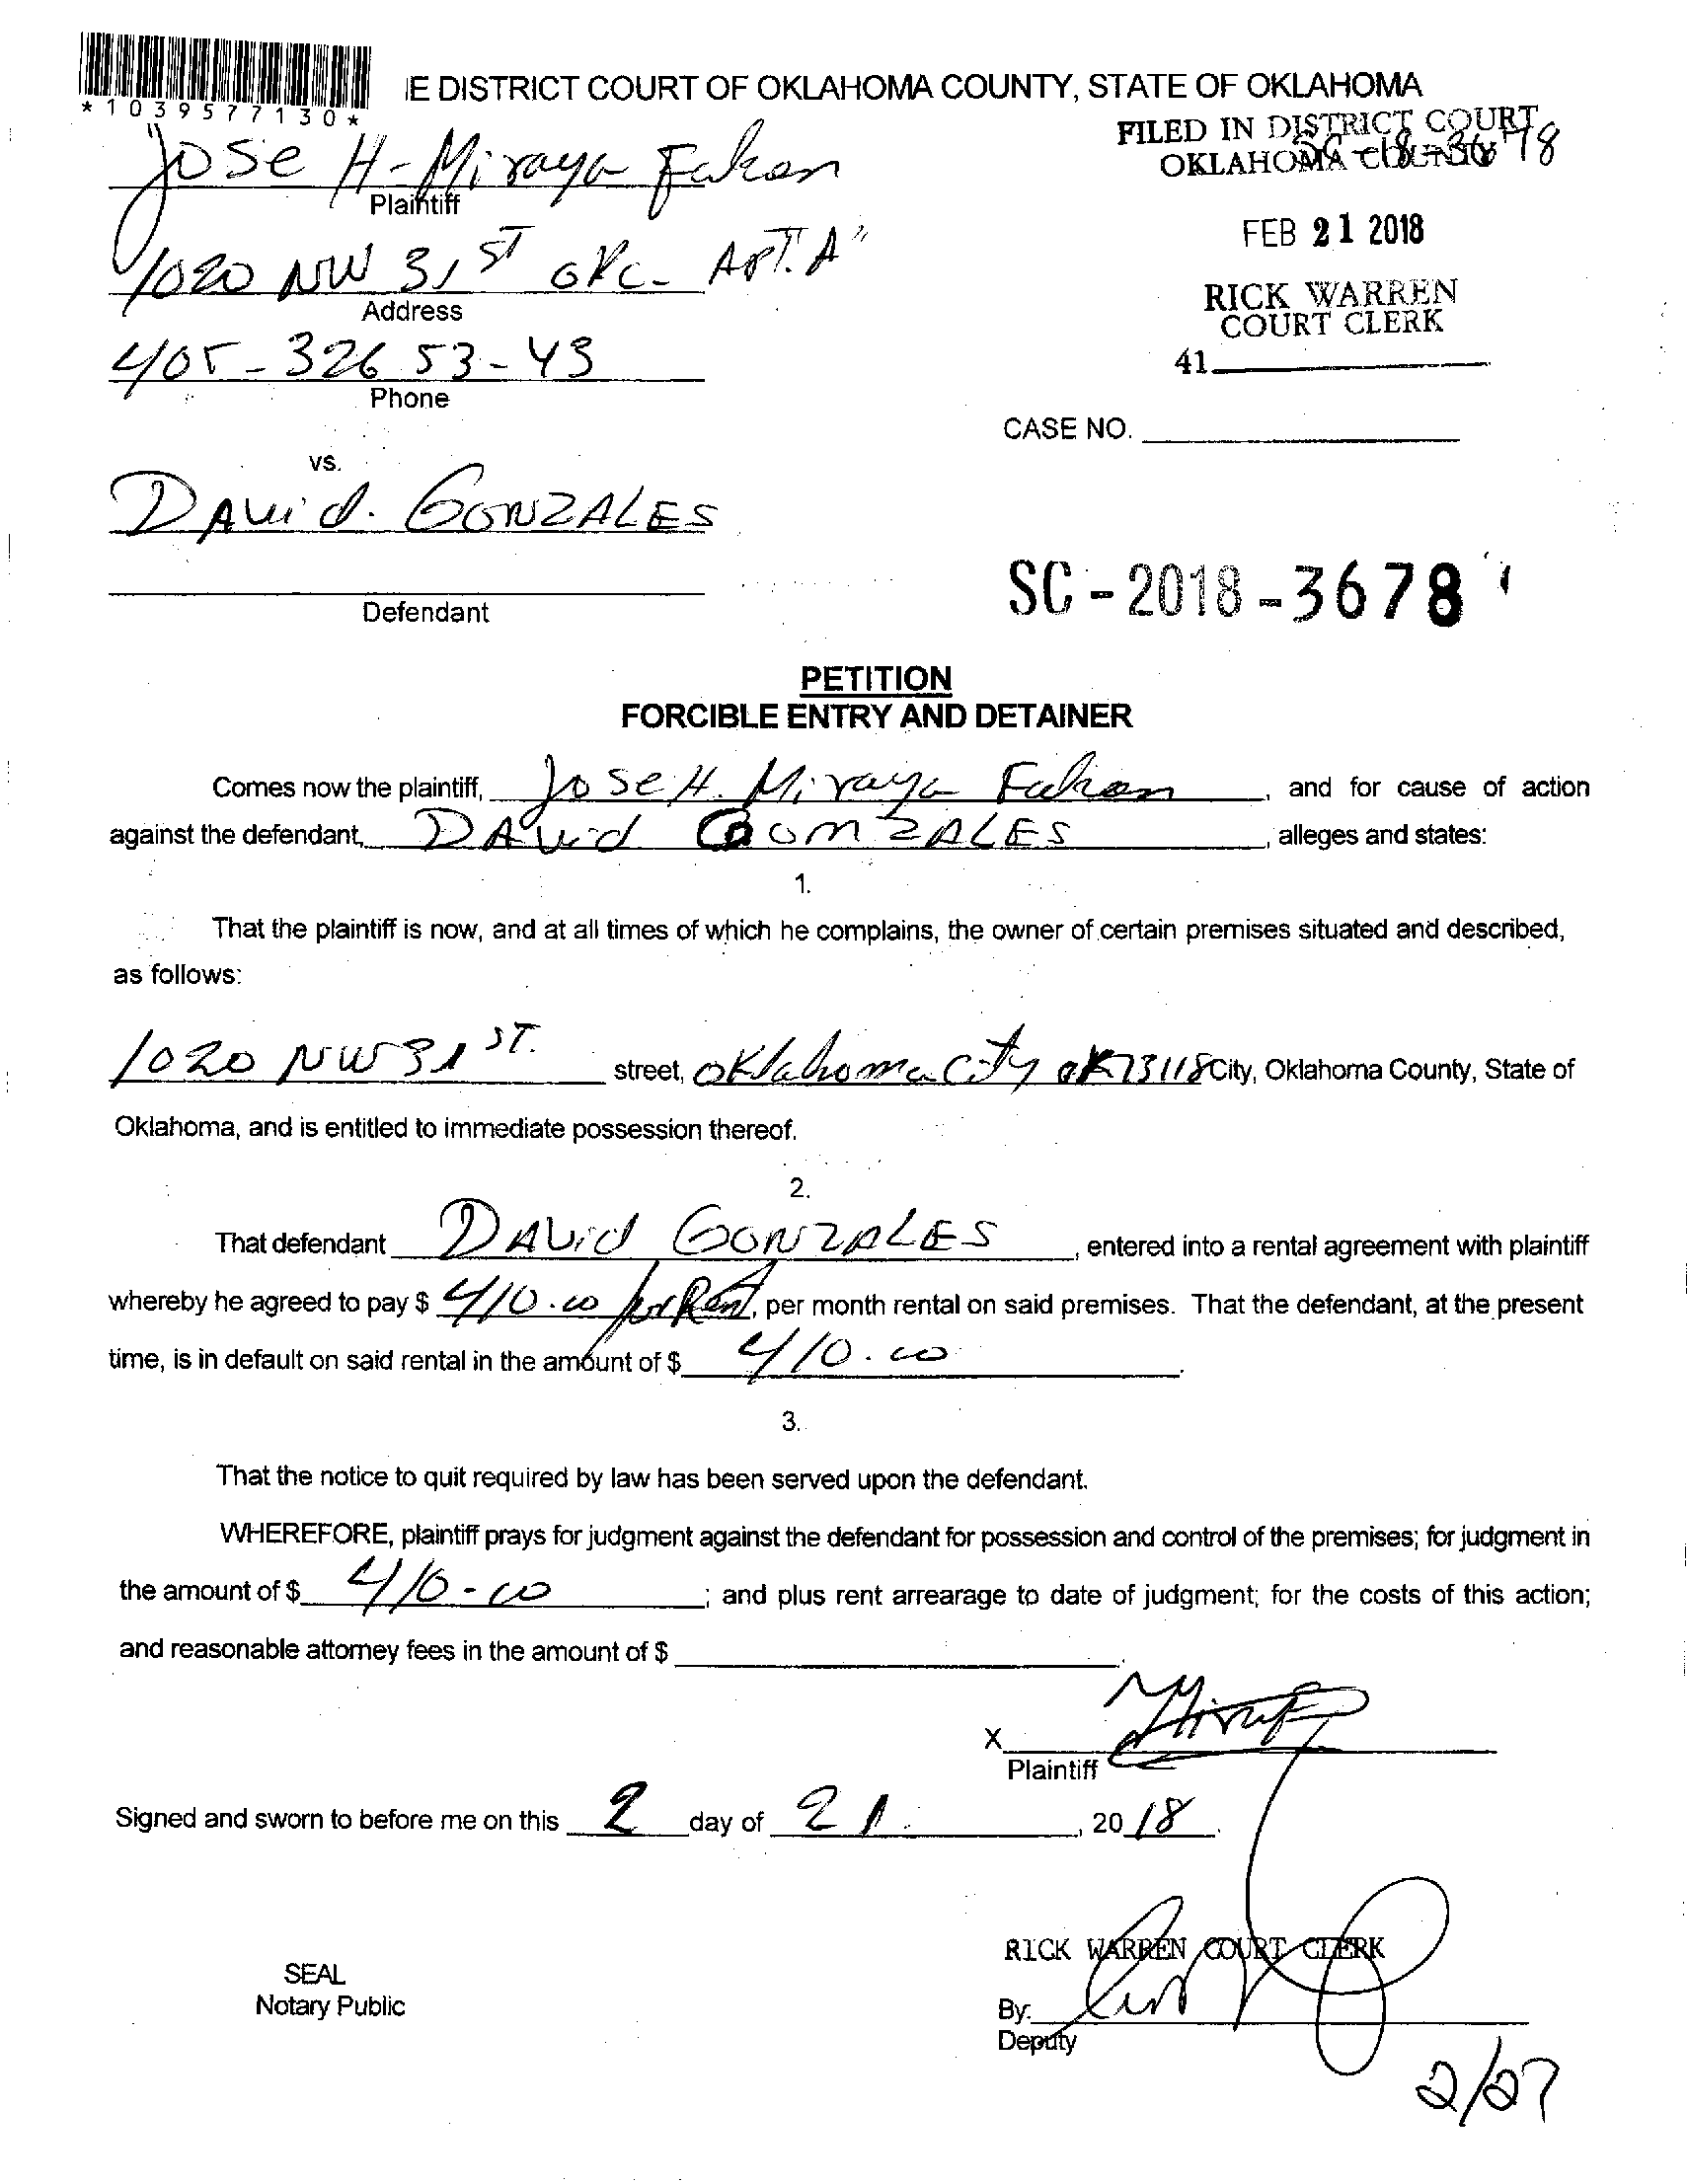 *1039577130*
IE DISTRICT COURT OF OKLAHOMA COUNTY, STATE OF OKLAHOMA
FILED IN DISTRICT COURT
OKLAHOMA COUNTY
SC-18-3678
Jose H-Miraya
Plaintiff
FEB 21 2018
1020 NW 31 ST OKC- APT. A"
Address
RICK WARREN
COURT CLERK
405-326 53-43
Phone
41
CASE NO.
vs.
DAvid. GONZALES
Defendant
SC-2018-3678
PETITION
FORCIBLE ENTRY AND DETAINER
Comes now the plaintiff, Jose H. Miraya , and for cause of action
against the defendant, DAvid GOmZALES , alleges and states:
1.
That the plaintiff is now, and at all times of which he complains, the owner of certain premises situated and described,
as follows:
1020 NW 31 ST. street, Oklahoma City OK 73118 City, Oklahoma County, State of
Oklahoma, and is entitled to immediate possession thereof.
2.
That defendant DAvid GONZALES , entered into a rental agreement with plaintiff
whereby he agreed to pay $ 410.00 for Rent, per month rental on said premises. That the defendant, at the present
time, is in default on said rental in the amount of $ 410.00 .
3.
That the notice to quit required by law has been served upon the defendant.
WHEREFORE, plaintiff prays for judgment against the defendant for possession and control of the premises; for judgment in
the amount of $ 410-00 ; and plus rent arrearage to date of judgment; for the costs of this action;
and reasonable attorney fees in the amount of $ .
X
Plaintiff
Signed and sworn to before me on this 2 day of 21. , 20 18 .
RICK WARREN COURT CLERK
SEAL
Notary Public
By:
Deputy
2/27